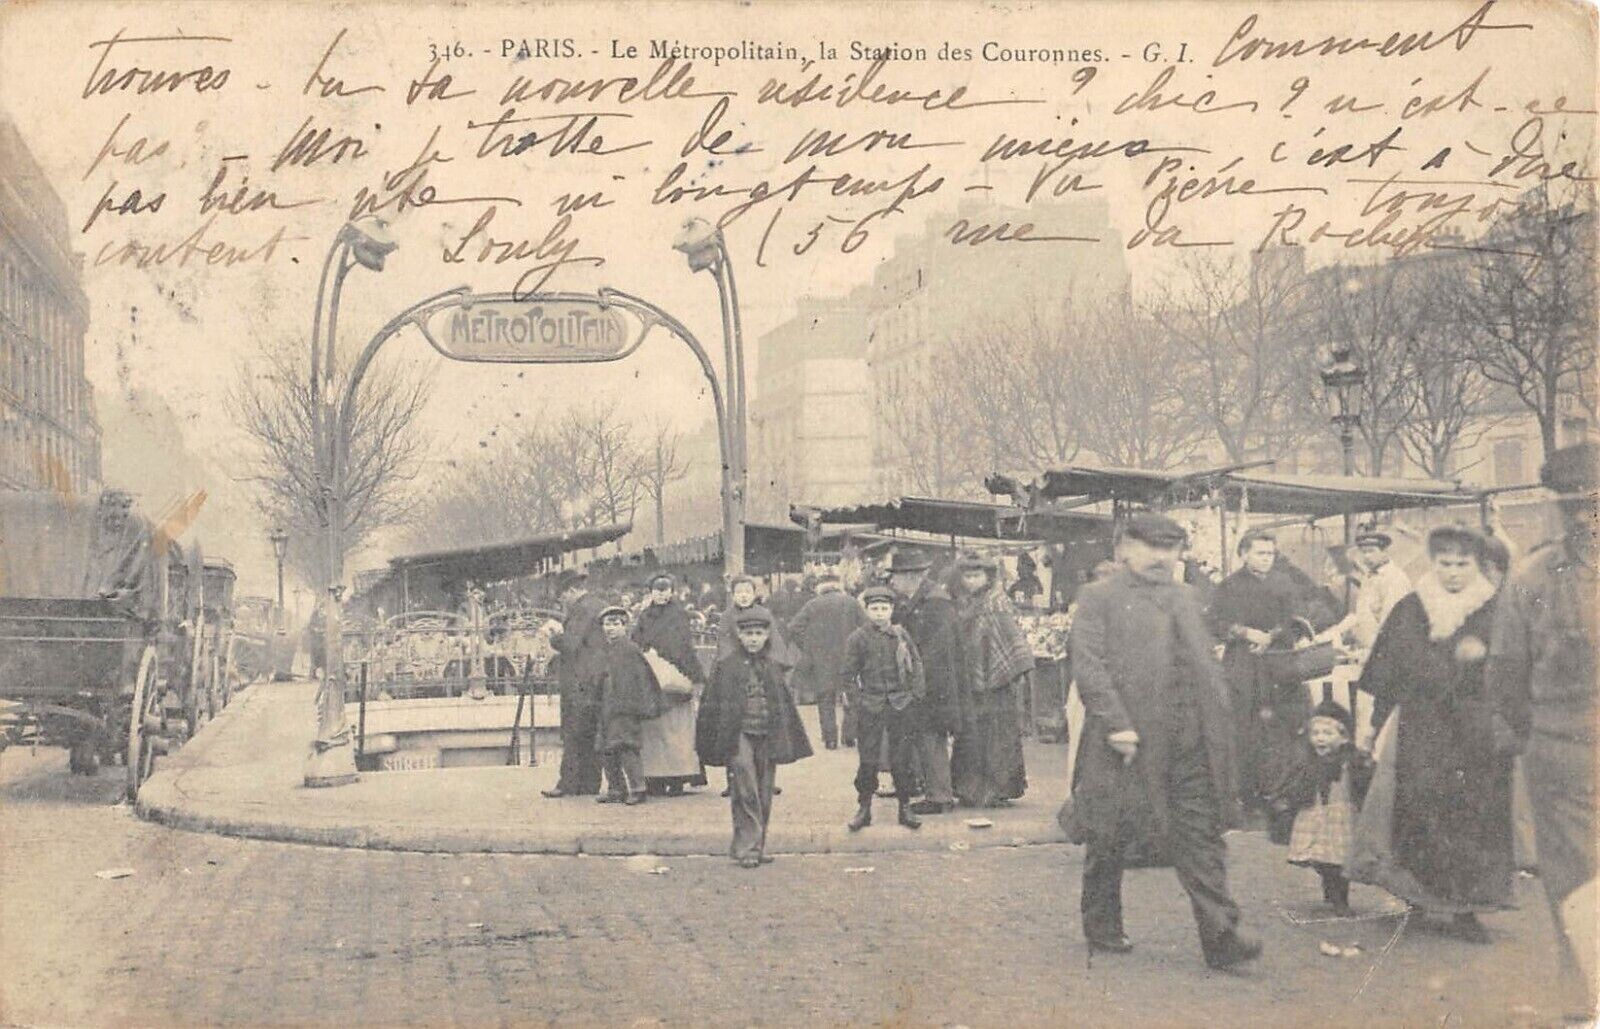 346. - PARIS. - Le Métropolitain, la Station des Couronnes. - G. I.
Comment
trouves-tu ta nouvelle résidence ? chic ? n'est-ce
pas. - Moi je trotte de mon mieux, c'est à dire
pas bien vite ni longtemps - Vu Pierre toujours
content. Louly (56 rue du Rocher
METROPOLITAIN
SORTIE